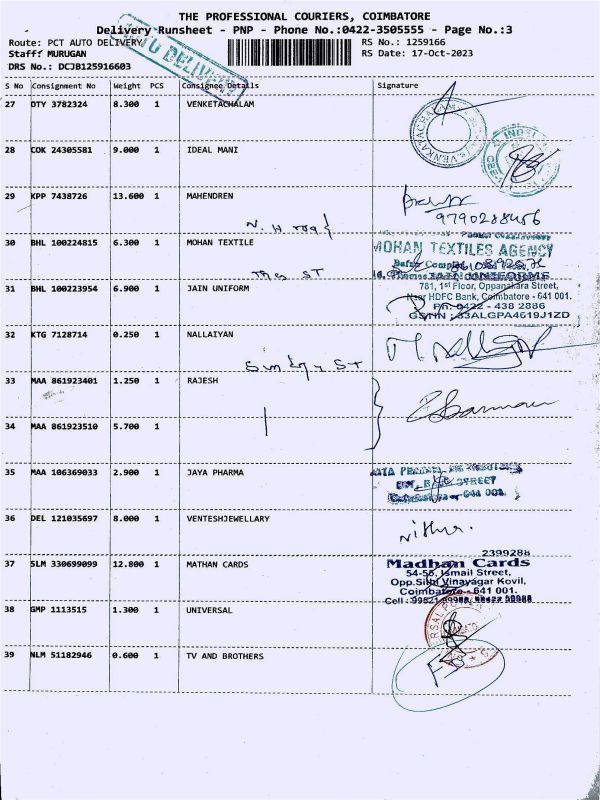 THE PROFESSIONAL COURIERS, COIMBATORE
Delivery Runsheet - PNP - Phone No.:0422-3505555 - Page No.:3
Route: PCT AUTO DELIVERY
RS No.: 1259166
Staff: MURUGAN
RS Date: 17-Oct-2023
DRS No.: DCJB125916603
AUTO DELIVERY
S No Consignment No Weight PCS Consignee Details Signature
27 DTY 3782324 8.300 1 VENKETACHALAM
28 COK 24305581 9.000 1 IDEAL MANI
29 KPP 7438726 13.600 1 MAHENDREN
9790288456
N. H road
30 BHL 100224815 6.300 1 MOHAN TEXTILE
MOHAN TEXTILES AGENCY
31 BHL 100223954 6.900 1 JAIN UNIFORM
JAIN UNIFORMS
781, 1st Floor, Oppanakara Street,
Near HDFC Bank, Coimbatore - 641 001.
Ph: 0422 - 438 2886
GSTIN : 33ALGPA4619J1ZD
32 KTG 7128714 0.250 1 NALLAIYAN
33 MAA 861923401 1.250 1 RAJESH
34 MAA 861923510 5.700 1
35 MAA 106369033 2.900 1 JAYA PHARMA
36 DEL 121035697 8.000 1 VENTESHJEWELLARY
2399288
37 SLM 330699099 12.800 1 MATHAN CARDS
Madhan Cards
54-55, Ismail Street,
Opp.Sithi Vinayagar Kovil,
Coimbatore - 641 001.
38 GMP 1113515 1.300 1 UNIVERSAL
39 NLM 51182946 0.600 1 TV AND BROTHERS